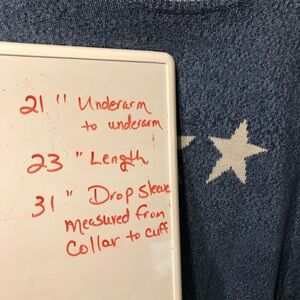 21 " Underarm
to underarm
23 " Length
31 " Drop sleeve
measured from
Collar to cuff